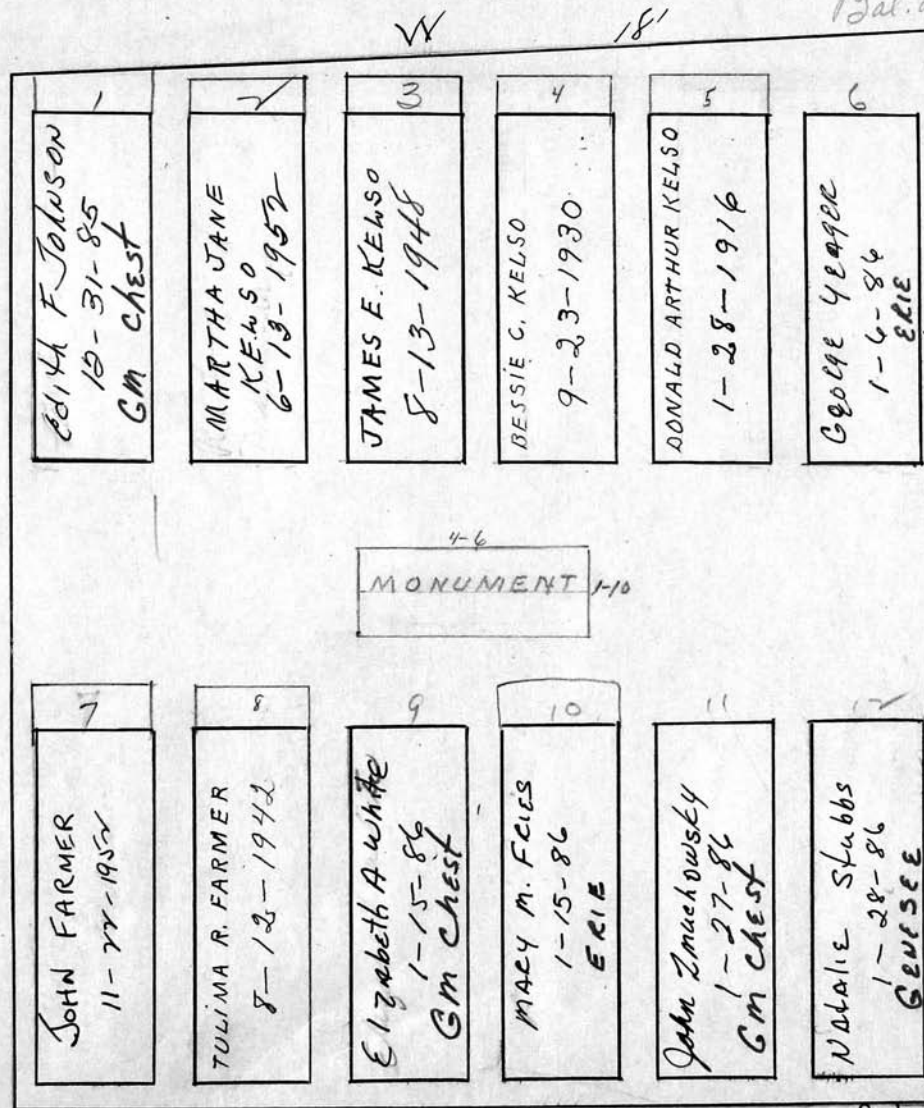 W 18'
1
Edith F. Johnson
12-31-85
GM Chest
2
MARTHA JANE
KELSO
6-13-1952
3
JAMES E. KELSO
8-13-1948
4
BESSIE C. KELSO
9-23-1930
5
DONALD ARTHUR KELSO
1-28-1916
6
George Yeager
1-6-86
ERIE
4-6
MONUMENT 1-10
7
JOHN FARMER
11-22-1952
8
TULIMA R. FARMER
8-12-1942
9
Elizabeth A White
1-15-86
GM Chest
10
MARY M. FRIES
1-15-86
ERIE
11
John Zmuchowsky
1-27-86
GM Chest
12
NATALIE Stubbs
1-28-86
GENESEE